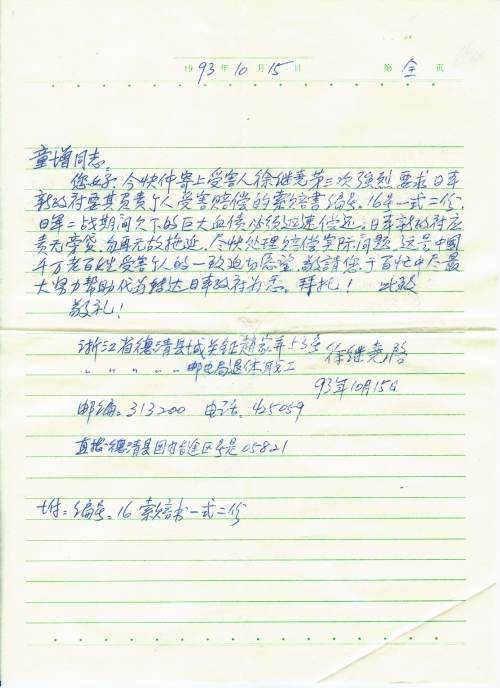 1993年10月15日 第全页
童增同志:
您好,今快件寄上受害人徐继尧第三次强烈要求日本
新政府要其负责个人受害赔偿的索赔書编号.16号一式二份,
日軍二战期间欠下的巨大血债必须迅速偿还.日本新政府应
责无旁贷,勿再无故拖延,尽快处理赔偿实际问题,这是中國
千万老百姓受害个人的一致迫切愿望,敬請您于百忙中尽最
大努力帮助代为转达日本政府为荷。拜托! 此致
敬礼!
浙江省德清县城关镇赵家弄53号
〃 〃 〃 〃 〃 邮电局退休职工
徐继尧 启
93年10月15日
邮编:313200 电话:425059
直拨德清县国内长途区号是05821
附:编号:16 索赔书一式二份